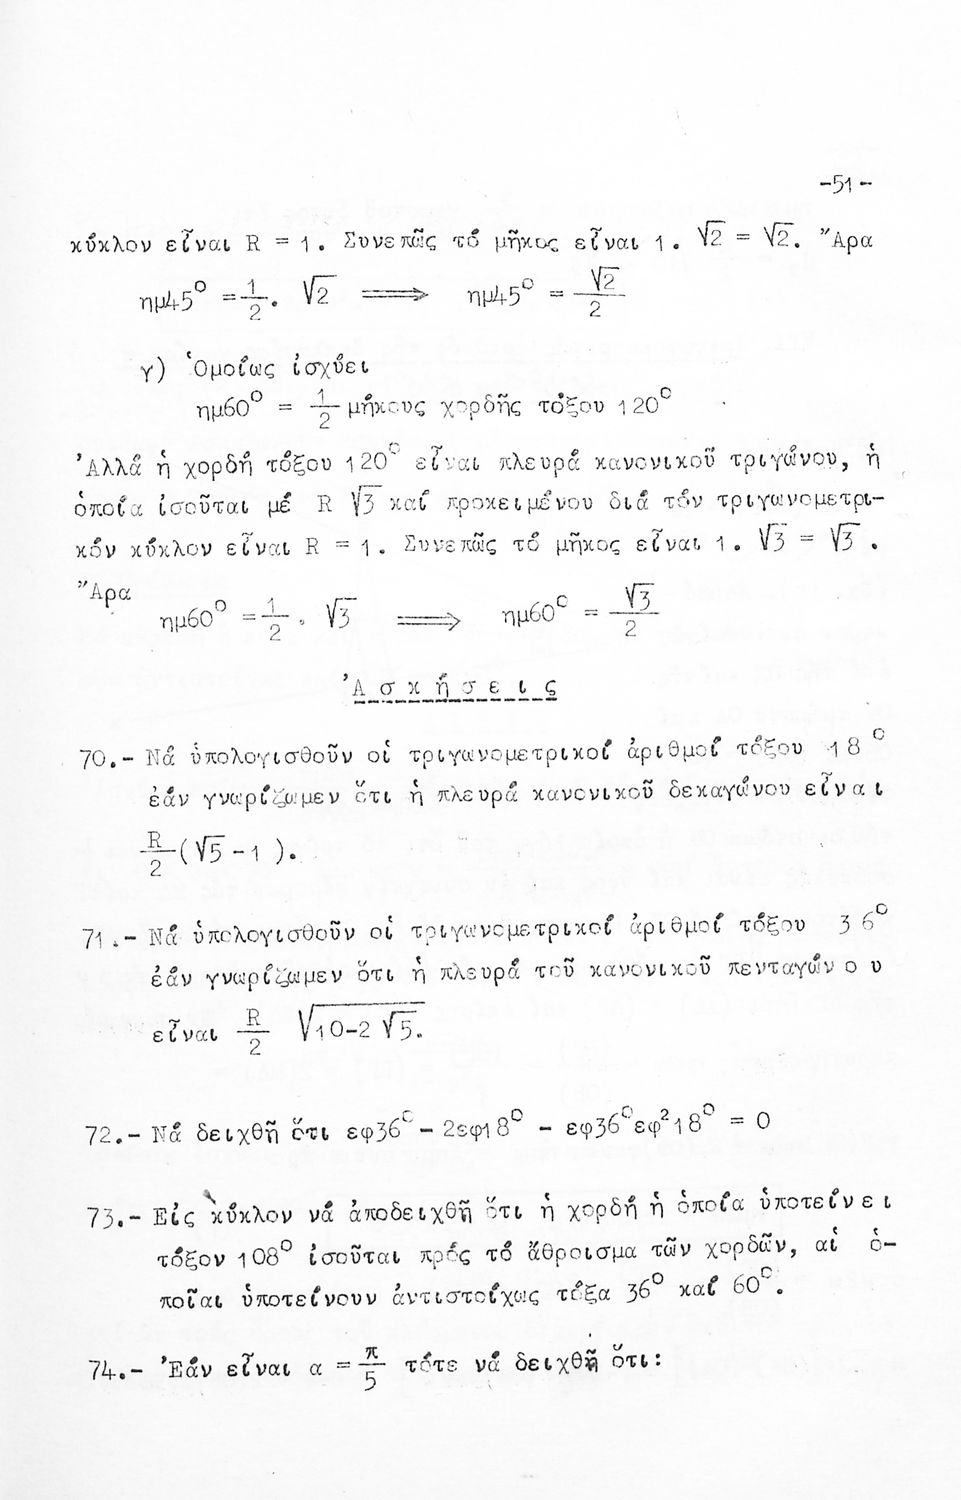 -51-
κύκλον εἶναι R = 1. Συνεπῶς τό μῆκος εἶναι 1. √2 = √2. Ἄρα
ημ45° = 1/2 . √2 ⟹ ημ45° = √2/2
γ) Ὁμοίως ἰσχύει
ημ60° = 1/2 μήκους χορδῆς τόξου 120°
Ἀλλά ἡ χορδή τόξου 120° εἶναι πλευρά κανονικοῦ τριγώνου, ἡ
ὁποία ἰσοῦται μέ R √3 καί προκειμένου διά τόν τριγωνομετρι-
κόν κύκλον εἶναι R = 1. Συνεπῶς τό μῆκος εἶναι 1. √3 = √3 .
Ἄρα
ημ60° = 1/2 . √3 ⟹ ημ60° = √3/2
Ἀσκήσεις
70.- Νά ὑπολογισθοῦν οἱ τριγωνομετρικοί ἀριθμοί τόξου 18°
ἐάν γνωρίζωμεν ὅτι ἡ πλευρά κανονικοῦ δεκαγώνου εἶναι
R/2 (√5 -1 ).
71.- Νά ὑπολογισθοῦν οἱ τριγωνομετρικοί ἀριθμοί τόξου 36°
ἐάν γνωρίζωμεν ὅτι ἡ πλευρά τοῦ κανονικοῦ πενταγώνου
εἶναι R/2 √(10-2√5).
72.- Νά δειχθῇ ὅτι εφ36° - 2εφ18° - εφ36°εφ²18° = 0
73.- Εἰς κύκλον νά ἀποδειχθῇ ὅτι ἡ χορδή ἡ ὁποία ὑποτείνει
τόξον 108° ἰσοῦται πρός τό ἄθροισμα τῶν χορδῶν, αἱ ὁ-
ποῖαι ὑποτείνουν ἀντιστοίχως τόξα 36° καί 60°.
74.- Ἐάν εἶναι α = π/5 τότε νά δειχθῇ ὅτι: